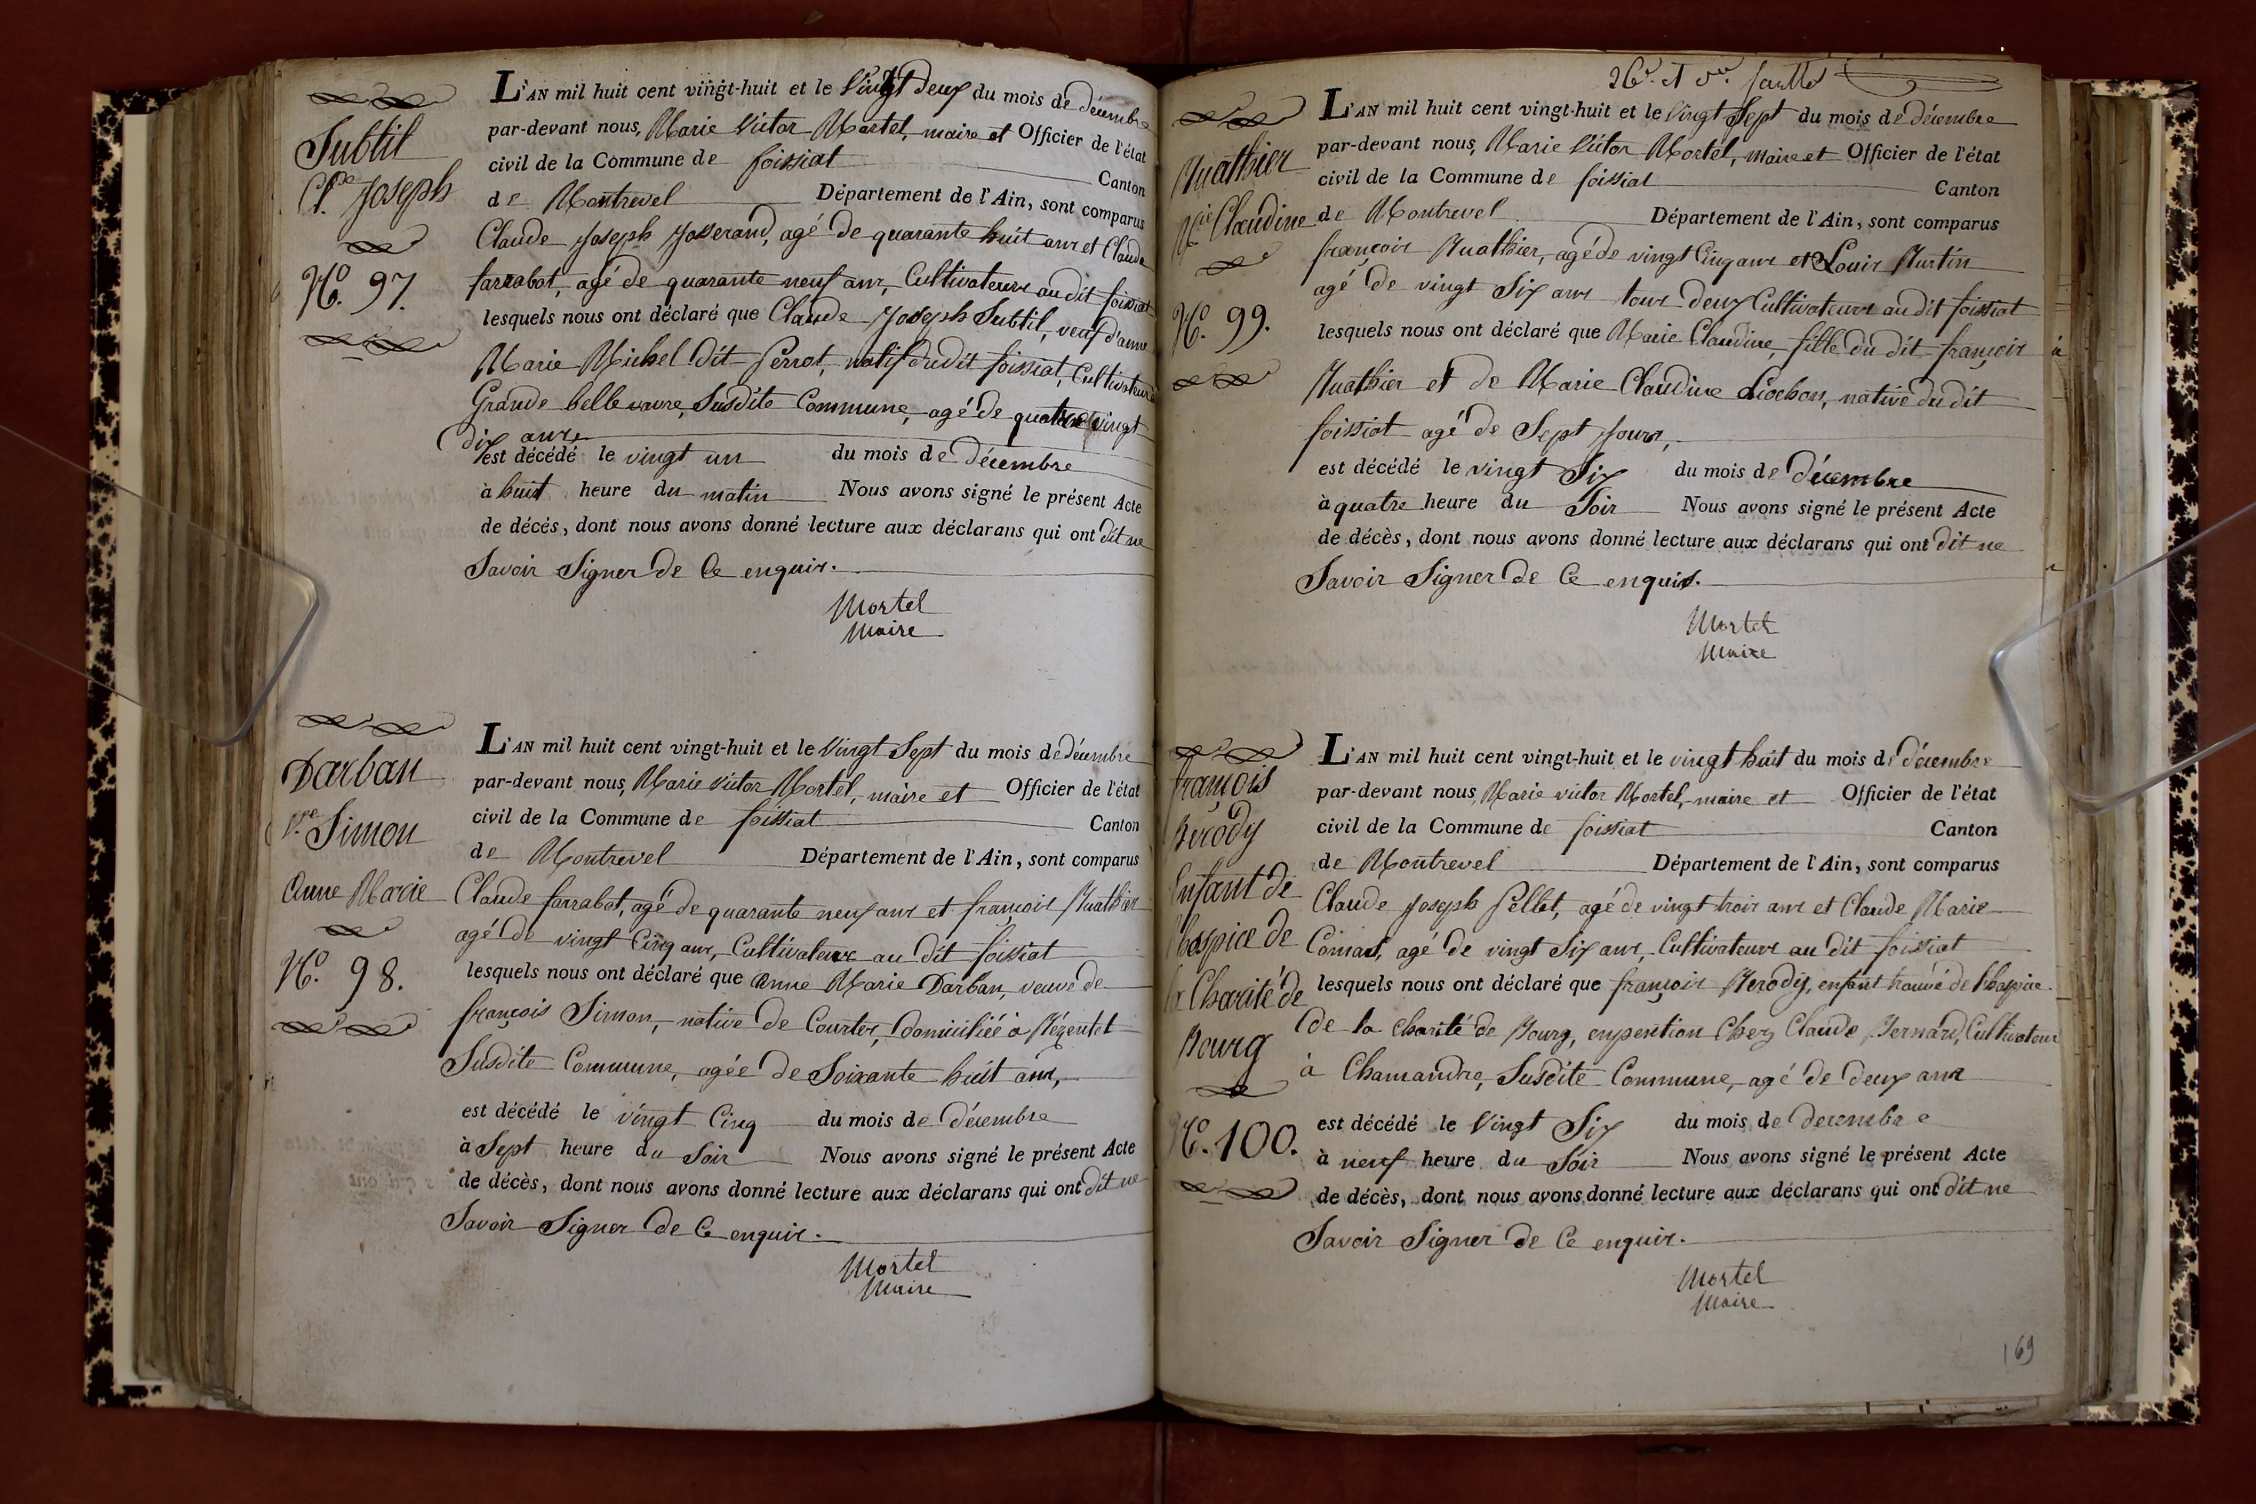 Subtil
Cl.de Joseph
N.o 97.
L'AN mil huit cent vingt-huit et le Vingt deux du mois de décembre
par-devant nous, Marie Victor Mortel, maire et Officier de l'état
civil de la Commune de foissiat Canton
de Montrevel Département de l'Ain, sont comparus
Claude Joseph Josserand, agé de quarante huit ans et Claude
farrabot, agé de quarante neuf ans, Cultivateurs au dit foissiat
lesquels nous ont déclaré que Claude Joseph Subtil, veuf d'anne
Marie Michel dit Perrot, natif dudit foissiat, Cultivateur à
Grande belle vavre, Susdite Commune, agé de quatre vingt
dix ans,
est décédé le vingt un du mois de décembre
à huit heure du matin Nous avons signé le présent Acte
de décés, dont nous avons donné lecture aux déclarans qui ont dit ne
Savoir Signer de Ce enquis.
Mortel
Maire
Darban
v.ve Simon
Anne Marie
N.o 98.
L'AN mil huit cent vingt-huit et le Vingt Sept du mois de décembre
par-devant nous, Marie Victor Mortel, maire et Officier de l'état
civil de la Commune de foissiat Canton
de Montrevel Département de l'Ain, sont comparus
Claude farrabot, agé de quarante neuf ans et françois Buathier
agé de vingt Cinq ans, Cultivateurs au dit foissiat
lesquels nous ont déclaré que Anne Marie Darban, veuve de
françois Simon, native de Courtes, Domiciliée à
Susdite Commune, agée de Soixante huit ans,
est décédé le vingt Cinq du mois de décembre
à Sept heure du Soir Nous avons signé le présent Acte
de décès, dont nous avons donné lecture aux déclarans qui ont dit ne
Savoir Signer de Ce enquis.
Mortel
Maire
26.e et
Buathier
M.ie Claudine
N.o 99.
L'AN mil huit cent vingt-huit et le Vingt Sept du mois de décembre
par-devant nous, Marie Victor Mortel, maire et Officier de l'état
civil de la Commune de foissiat Canton
de Montrevel Département de l'Ain, sont comparus
françois Buathier, agé de vingt Cinq ans et Louis Burtin
agé de vingt Six ans tous deux Cultivateurs au dit foissiat
lesquels nous ont déclaré que Marie Claudine, fille du dit françois
Buathier et de Marie Claudine Liochon, native du dit
foissiat agé de Sept Jours,
est décédé le vingt Six du mois de décembre
à quatre heure du Soir Nous avons signé le présent Acte
de décès, dont nous avons donné lecture aux déclarans qui ont dit ne
Savoir Signer de Ce enquis.
Mortel
Maire
françois
Berody
Enfant de
l'hospice de
la Charité de
Bourg
N.o 100.
L'AN mil huit cent vingt-huit et le vingt huit du mois de décembre
par-devant nous, Marie victor Mortel, maire et Officier de l'état
civil de la Commune de foissiat Canton
de Montrevel Département de l'Ain, sont comparus
Claude Joseph Pellet, agé de vingt trois ans et Claude Marie
agé de vingt Six ans, Cultivateurs au dit foissiat
lesquels nous ont déclaré que françois Berody, enfant trouvé de l'hospice
de la charité de Bourg, en pention Chez Claude Bernard, Cultivateur
à Chamandre, Susdite Commune, agé de deux ans
est décédé le Vingt Six du mois de decembre
à neuf heure du Soir Nous avons signé le présent Acte
de décès, dont nous avons donné lecture aux déclarans qui ont dit ne
Savoir Signer de Ce enquis.
Mortel
Maire
169